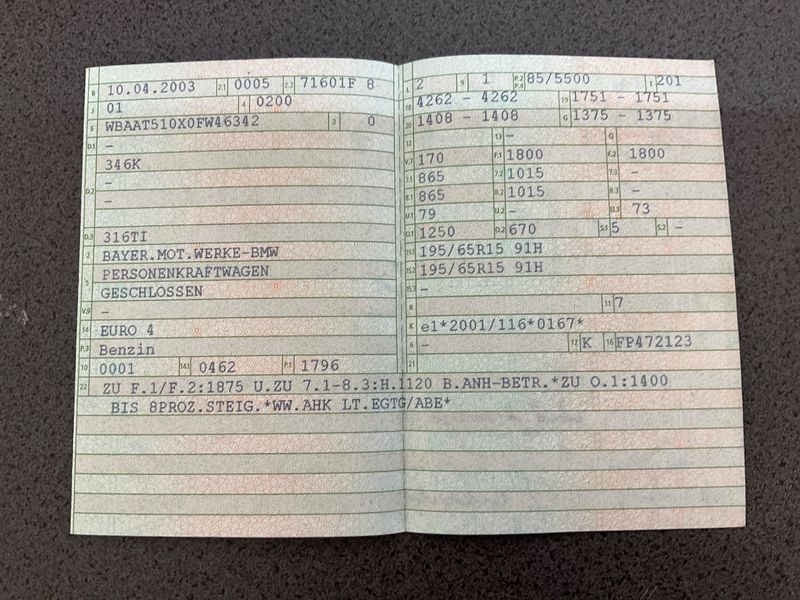 B 10.04.2003 2.1 0005 2.2 71601F 8
J 01 4 0200
E WBAAT510X0FW46342 3 0
D.1 -
346K
D.2 -
-
D.3 316TI
2 BAYER.MOT.WERKE-BMW
5 PERSONENKRAFTWAGEN
GESCHLOSSEN
V.9 -
14 EURO 4
P.3 Benzin
10 0001 14.1 0462 P.1 1796
L 2 9 1 P.2 P.4 85/5500 T 201
18 4262 - 4262 19 1751 - 1751
20 1408 - 1408 G 1375 - 1375
12 13 - Q
V.7 170 F.1 1800 F.2 1800
7.1 865 7.2 1015 7.3 -
8.1 865 8.2 1015 8.3 -
U.1 79 U.2 - U.3 73
O.1 1250 O.2 670 S.1 5 S.2 -
15.1 195/65R15 91H
15.2 195/65R15 91H
15.3 -
R 11 7
K e1*2001/116*0167*
6 - 17 K 16 FP472123
21
22 ZU F.1/F.2:1875 U.ZU 7.1-8.3:H.1120 B.ANH-BETR.*ZU O.1:1400
BIS 8PROZ.STEIG.*WW.AHK LT.EGTG/ABE*